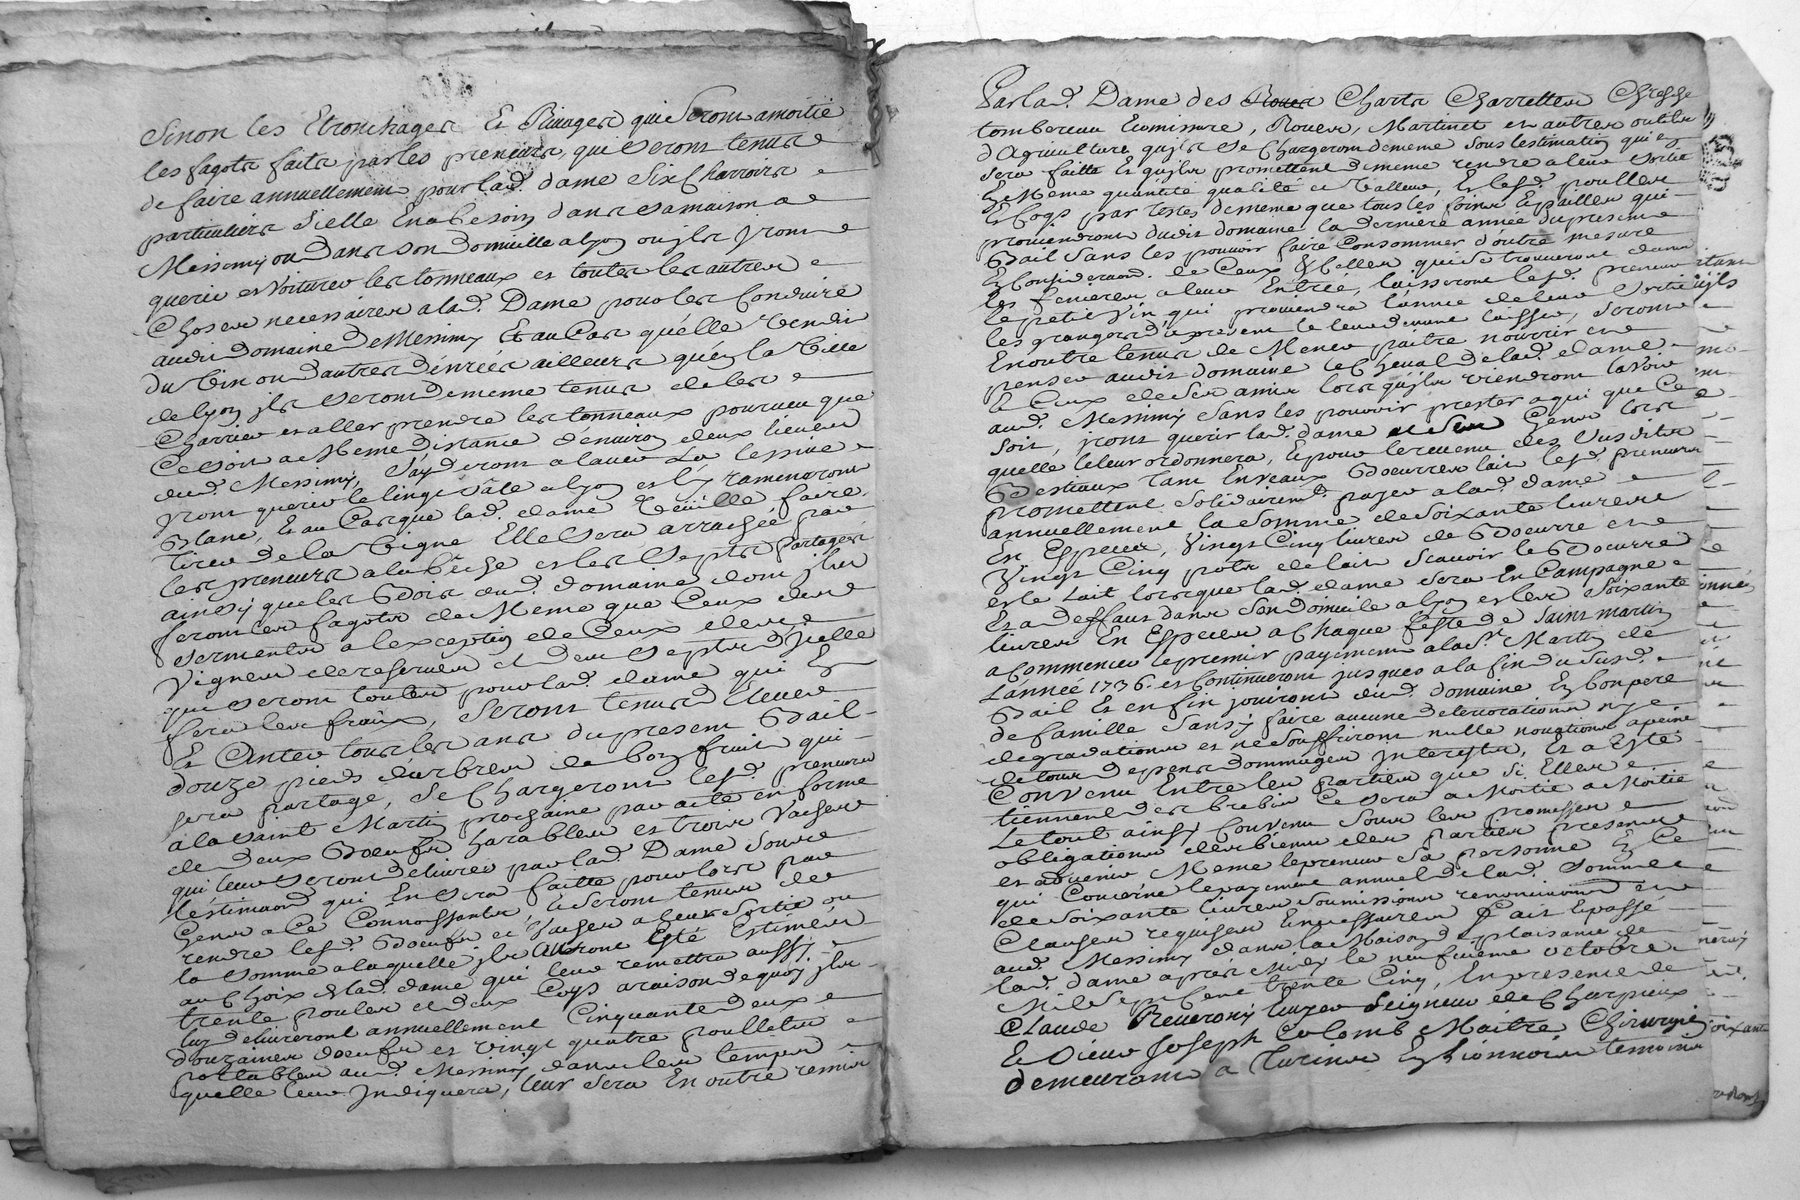 Sinon les Etronchages Et Rivages qui seront amoitié
les fagots faits par les preneurs, qui seront tenus
de faire annuellement pour lad. dame six charrois
particuliers sielle En a besoin dans sa maison a
Messimy ou dans son domicille a lyon ou ils Iront
querir et voiturer les tonneaux et toutes les autres
Choses necessaires a lad. Dame pour les Conduire
audit domaine de Messimy Et au Cas quélle vendit
du vin ou d'autres dénrées ailleurs quén la Ville
de lyon ils seront de meme tenus de les
Charrier et aller prendre les tonneaux pourveu que
Ce soit a Meme distance d'environ deux lieues
dud. Messimy, S'ayderont a laver La lessive
Iront querir le linge Sâle a lyon et ly rameneront
Blanc, Et au Cas que lad. dame Veüille faire
tirer de la Vigne Elle sera arrachée par
les preneurs a la bêche et les Septs partagés
ainsy que les Bois dud. domaine dont ils
feront les fagots de Meme que Ceux des
serments a lexception de Ceux de
Vignes de reserves et des Septs dicelle
qui seront touts pour lad. dame qui En
fera les fraix, Seront tenus Elever
Et Enter tous les ans du present Bail
douze pieds d'arbres de bon fruit qui
sera partagé, Se Chargeront lesd. preneurs
a la Saint Martin prochaine par acte en forme
de deux Boeufs harables et trois Vaches
qui leur seront delivrés par lad. Dame Sous
l'éstimaon qui En sera faitte pour lors par
Gens a Ce Connoissants, & seront tenus de
rendre lesd. Boeufs et Vaches a leur Sortie ou
la somme a laquelle ils Auront Esté Estimés
au Choix de lad. dame qui leur remettra aussy
trente poules et deux Coqs a raison de quoy ils
luy delivreront annuellement Cinquante deux
douzaines d'oeufs et vingt quatre poullets
portables aud. Messimy dans les temps
quelle leur Indiquera, leur sera En outre remis
Par lad. Dame des Roues Chars Charrettes
tombereau Ecomissure, Roues, Martinet et autres outils
d'Agriculture quils se Chargeront de meme sous l'estimation qui en
sera faitte Et quils promettent de meme rendre a leur sortie
En Meme quantité qualité et Valleur, Et lesd. poulles
Et Coqs par testes de meme que tous les foins Et pailles qui
proviendront dudit domaine la derniere année du present
Bail Sans les pouvoir faire Consommer d'outre mesure
En Consideraon de Ceux Et Celles qui se trouveront dans
les fenieres a leur Entrée, laisseront lesd. preneurs
le petit Vin qui proviendra l'année de leur Sortie
les grangers d'apresent le leur devant laisser, Seront
En outre tenus de Mener paitre nourrir et
penser audit domaine le Cheval de lad. dame
& Ceux de Ses amis lors quils viendront la Voir
aud. Messimy Sans les pouvoir prester a qui que Ce
soit, iront querir lad. dame et Ses Gens lors
quelle le leur ordonnera, Et pour le revenu des Susdits
Bestiaux tant En Veaux Boeurre & lait lesd. preneurs
promettent Solidairemt. payer a lad. dame
annuellement la Somme de Soixante livres
En Especes, Vingt Cinq livres de Boeurre et
Vingt Cinq pots de lait Scavoir le Boeurre
et le Lait lorsque lad. dame sera En Campagne
Et a deffaut dans Son domicile a lyon et les Soixante
livres En Especes a Chaque feste de Saint martin
a Commencer le premier payement a la St. Martin de
L'année 1736. et Continueront jusques a la fin du Susd.
Bail Et en fin jouiront dud. domaine En bon pere
de famille Sans y faire aucune deteriorations ny
degradations et ne Souffriront nulle novations a peine
de tous depens dommages Interests, Et a Esté
Convenu Entre les parties que Si Elles
tiennent des brebis Ce sera a Moitié a Moitié
Le tout ainsy Convenu Sous les promesses
obligations des biens des parties presents
et advenir Meme le preneur Sa personne En Ce
qui Concerne le payement annuel de lad. Somme
de Soixante livres Soumissions renonciations et
Clauses requises & necessaires Fait & passé
aud. Messimy dans la Maison de plaisance de
lad. dame apres Midy le neufvieme octobre
Mil Sept Cent trente Cinq, En presence de
Claude Reverony huyer Seigneur de Charpieux
Et Sieur Joseph Colomb Maitre Chirurgien
demeurant a Thurins En Lionnois temoins